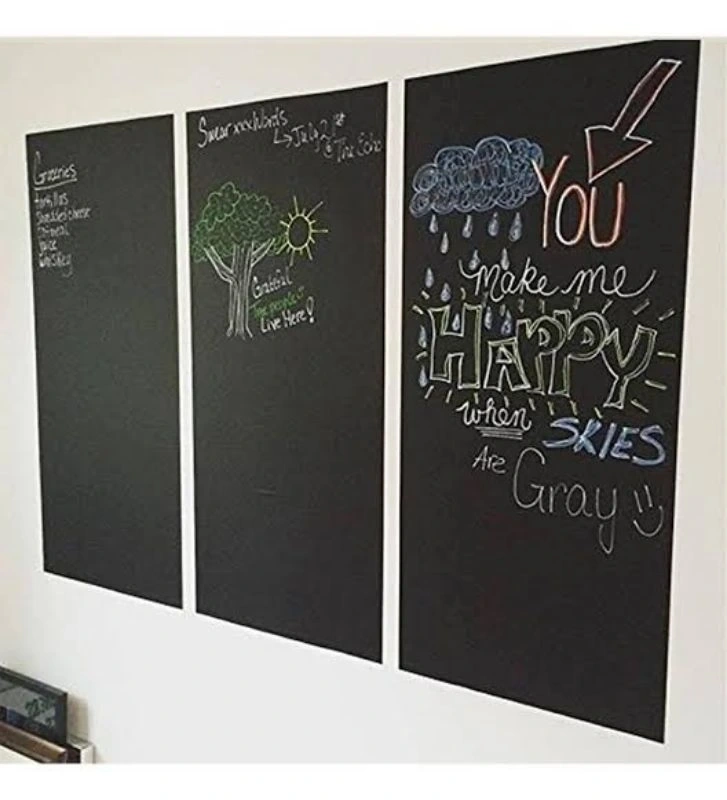 Groceries
tortillas
Shredded cheese
Oatmeal
Juice
Whiskey
Swear xxx Words
July 21st
@ The Echo
Grateful
Tree people
Live Here!
YOU
make me
HAPPY
when SKIES
Are Gray